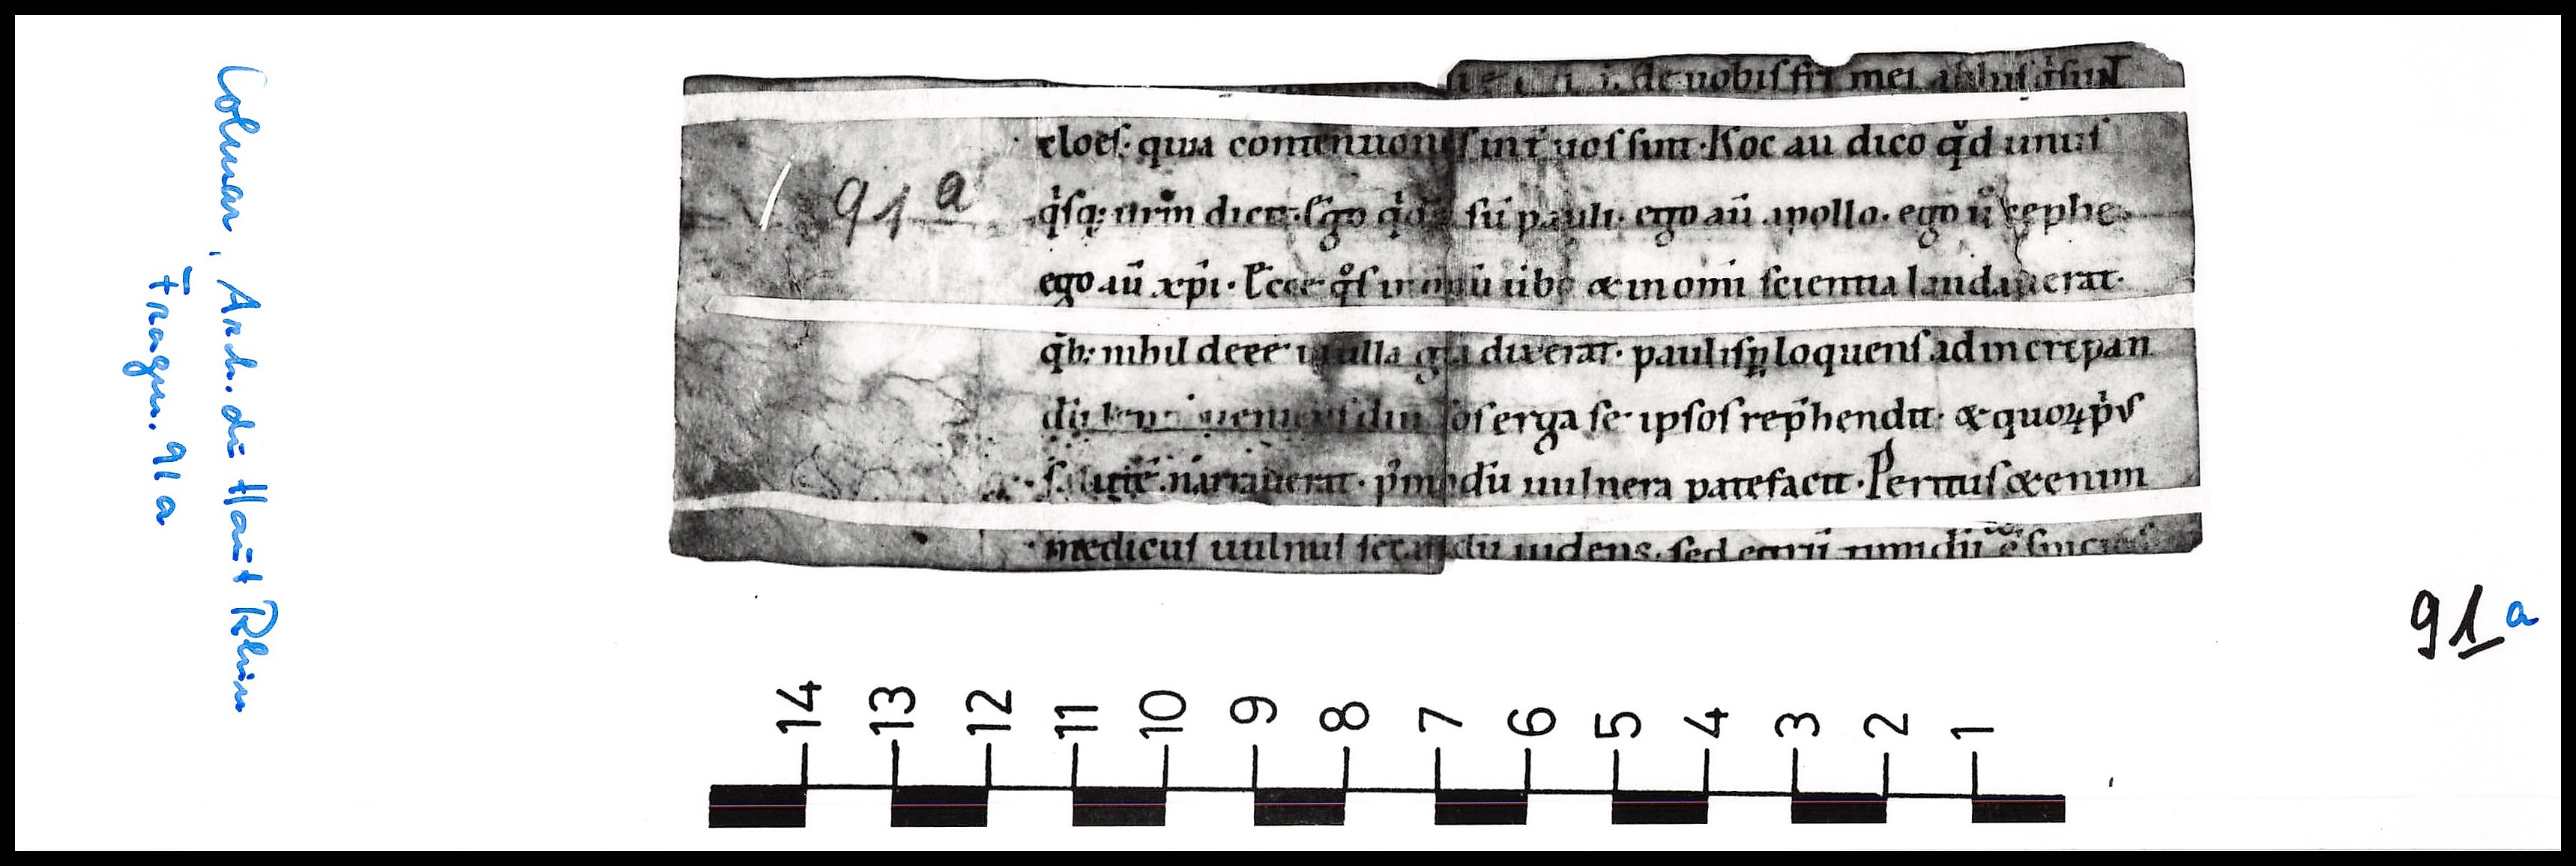 Colmar, Arch. du Haut Rhin
Fragm. 91 a
de uobis fr̄s mei ab his q̇ sunt
cloes. quia contentiones int̄ uos sunt. hoc au dico qd̊ unus
q̇sq; ur̄m dicit. Ego q̇dē sū pauli. ego aū apollo. ego ū cephe.
ego aū xp̄i. Ecce qͦs in om̄i scientia laudauerat.
qb; nihil deee in ulla gr̄a dixerat. paulisꝑ loquens ad increpan
erga se ipsos rep̄hendit. & quoꝝ ṗus
narrauerat. uulnera patefacit. Peritus &enim
medicus uulnus secandū uidens. sed egrū timidū
91 a
91 a
14 13 12 11 10 9 8 7 6 5 4 3 2 1